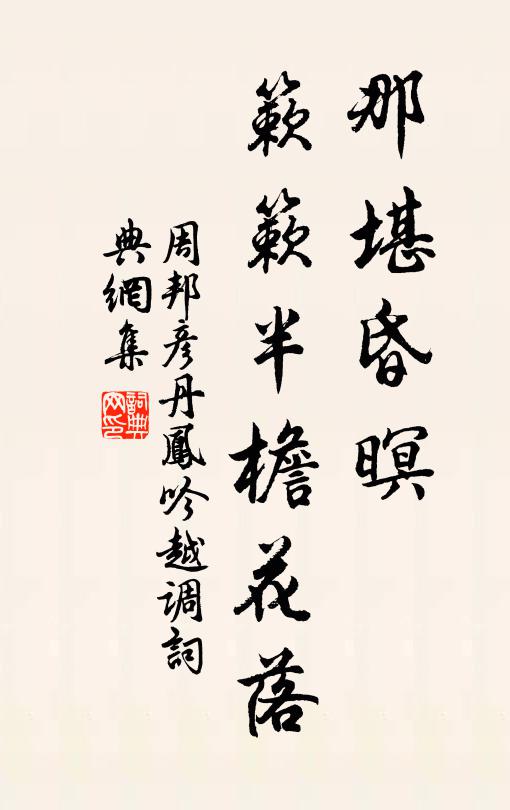 那堪昏暝
簌簌半檐花落
周邦彦丹鳳吟越调詞
典網集
詞典网印